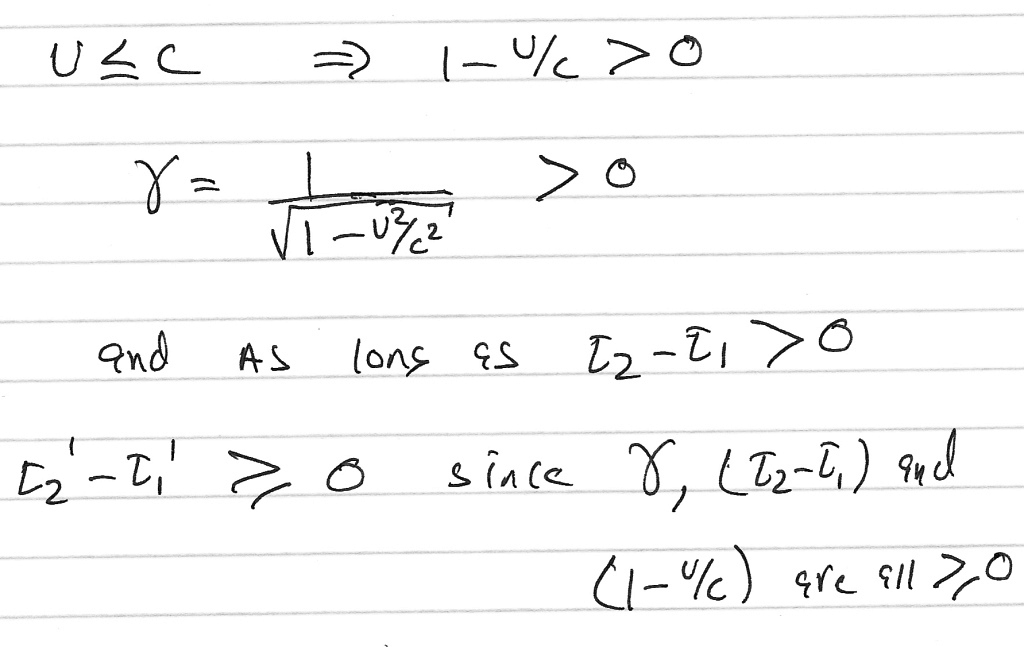 U ≤ C ⇒ 1 - U/c > 0
γ = 1/√(1 - U²/c²) > 0
and As long as τ₂ - τ₁ > 0
τ₂' - τ₁' ≥ 0 since γ, (τ₂-τ₁) and
(1 - U/c) are all ≥ 0